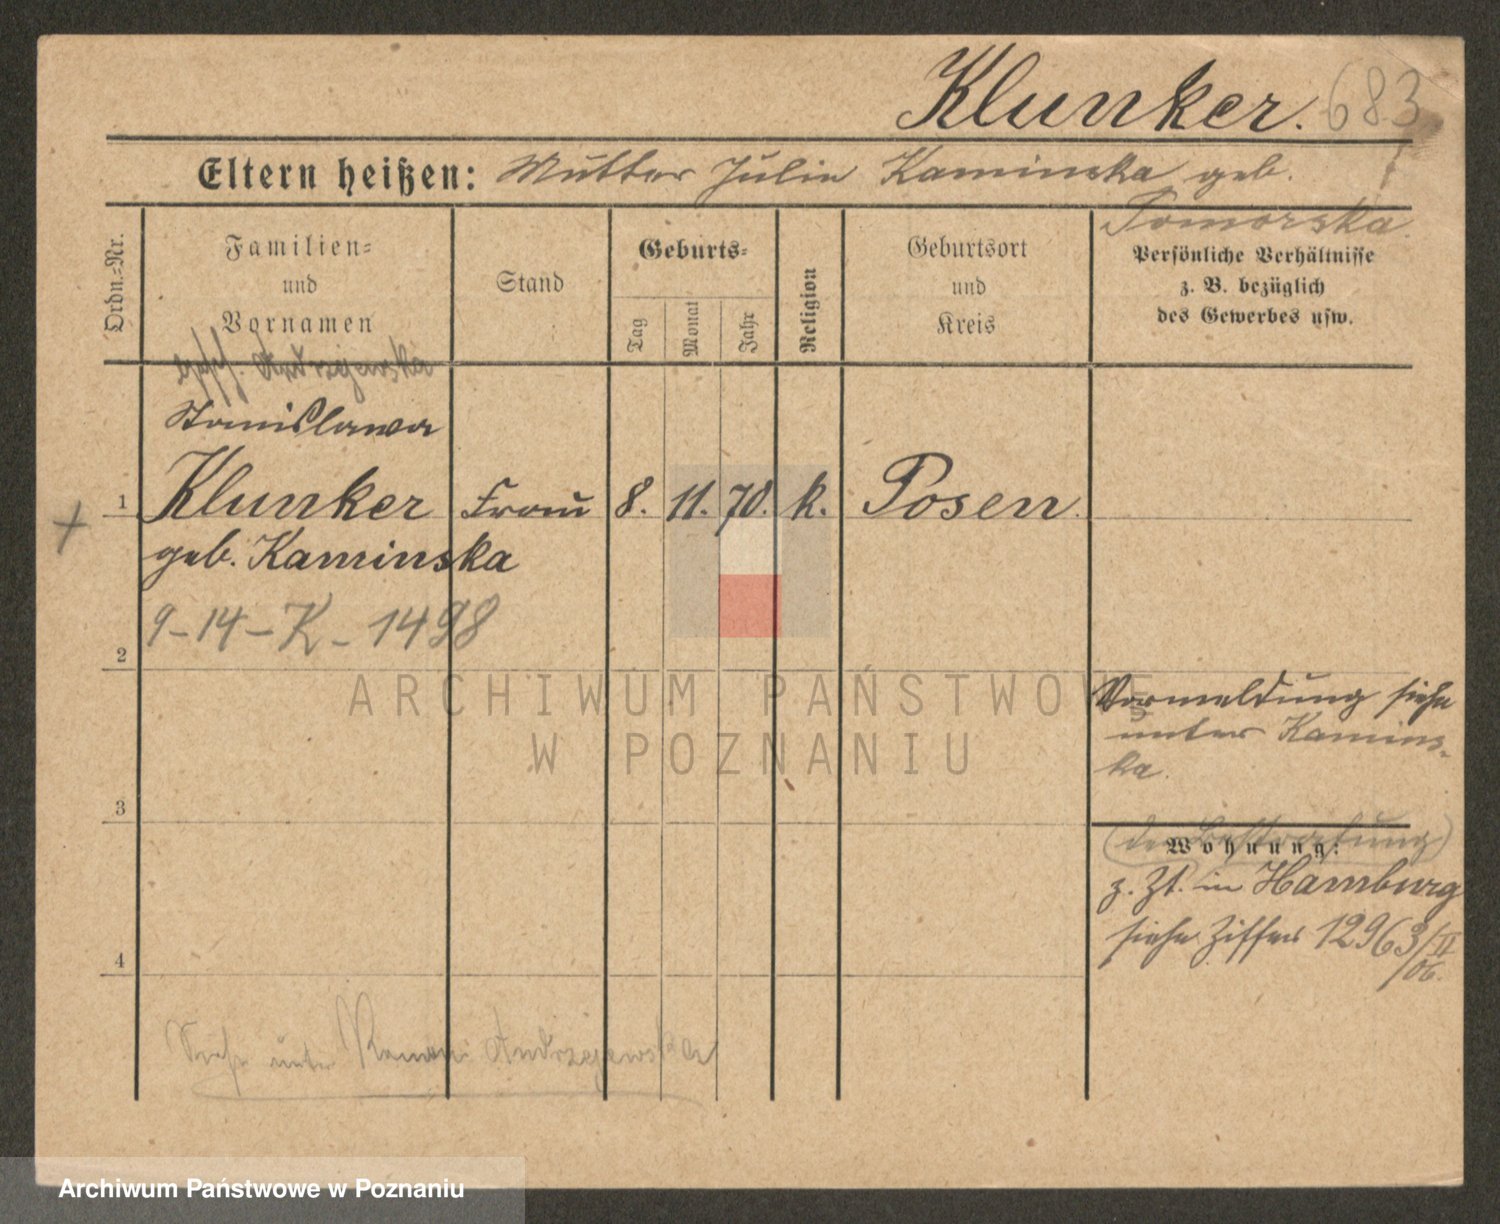 Klunker. 683
Eltern heißen: Mutter Julie Kaminska geb.
Pomorska.
Ordn.-Nr.
Familien-
und
Vornamen
Stand
Geburts-
Tag
Monat
Jahr
Religion
Geburtsort
und
Kreis
Persönliche Verhältnisse
z. B. bezüglich
des Gewerbes usw.
Andrzejewska
Stanislawa
1 Klunker Frau 8. 11. 70. k. Posen.
geb. Kaminska
9-14-K-1498
2
Vormeldung siehe
unter Kamins-
ka.
3
Wohnung:
z. Zt. in Hamburg
siehe Ziffer 12963/II
/06.
4
Siehe unter Andrzejewska
ARCHIWUM PAŃSTWOWE
W POZNANIU
Archiwum Państwowe w Poznaniu